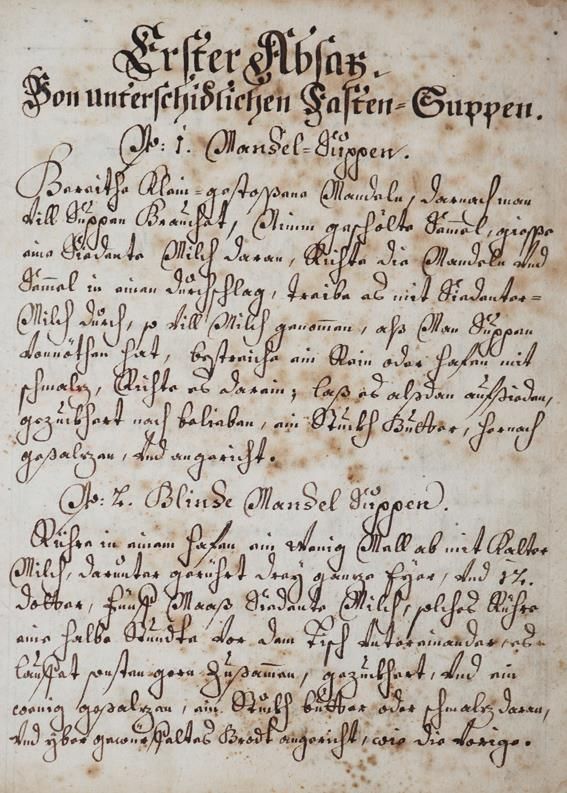 Erster Absatz.
Von unterschidlichen Fasten-Suppen.
No: 1. Mandel-Suppen.
Bereithe Klein-gestossene Mandeln, darnach man
vill Suppen Brauchet, Nimm geschölte Semel, giesse
eine Siedente Milch daran, Richte die Mandeln Und
Semmel in einen durchschlag, treibe es mit Siedenter-
Milch durch, so vill Milch genommen, alß Man Suppen
Vonnöthen hat, bestreiche ein Rein oder Hafen mit
schmalz, Richte es darein; laß es alßdan aufsieden,
gezuckhert nach belieben, ein Stuckh Butter, hernach
gesalzen, Und angericht.
No: 2. Blinde Mandel Suppen.
Rühre in einem Hafen ein wenig Mell ab mit Kalter
Milch, darunter gerührt drey ganze Eyer, Und 12.
dotter, fünf Maaß Siedente Milch, solches Rühre
eine halbe Stundte Vor dem Tisch Untereinander, es
lauffet sonsten gern Zusammen, gezuckhert, Und ein
wenig gesalzen, ein Stuckh butter oder schmalz daran,
Und yber gewürffeltes Brodt angericht, wie die Vorige.